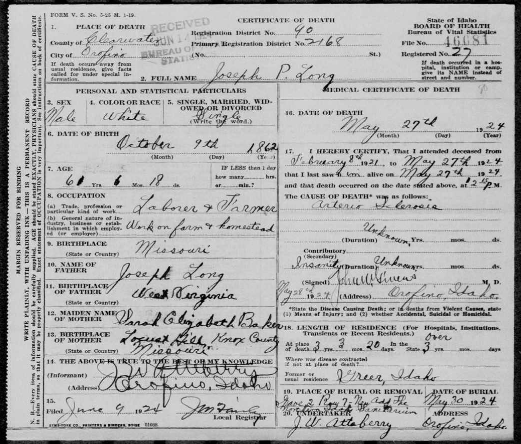 FORM V. S. No. 5-25 M. 1-19.
CERTIFICATE OF DEATH
State of Idaho
BOARD OF HEALTH
Bureau of Vital Statistics
1. PLACE OF DEATH
RECEIVED
County of Clearwater
City of Orofino
Registration District No. 90
Primary Registration District No. 2168
File No. 46681
Registered No. 27
(No. St.)
If death occurred away from usual residence, give facts called for under special information.
If death occurred in a hospital, institution or camp, give its NAME instead of street and number.
2. FULL NAME Joseph P. Long
PERSONAL AND STATISTICAL PARTICULARS
3. SEX
Male
4. COLOR OR RACE
White
5. SINGLE, MARRIED, WIDOWED OR DIVORCED
Single
(Write the word.)
6. DATE OF BIRTH
October 9th 1862
(Month) (Day) (Year)
7. AGE
61 Yrs. 6 Mos. 18 ds.
IF LESS than 1 day
how many hrs.
or min.?
8. OCCUPATION
(a) Trade, profession or particular kind of work
Laborer & Farmer
(b) General nature of industry, business or establishment in which employed (or employer)
Work on farm & homestead
9. BIRTHPLACE
Missouri
(State or Country)
10. NAME OF FATHER
Joseph Long
11. BIRTHPLACE OF FATHER
West Virginia
(State or Country)
12. MAIDEN NAME OF MOTHER
Sarah Elizabeth Baker
13. BIRTHPLACE OF MOTHER
Locust Hill, Knox County
Missouri
(State or Country)
14. THE ABOVE IS TRUE TO THE BEST OF MY KNOWLEDGE
(Informant) J. W. Attaberry
(Address) Orofino, Idaho
15.
Filed June 9 1924
Local Registrar
MEDICAL CERTIFICATE OF DEATH
16. DATE OF DEATH
May 27th 1924
(Month) (Day) (Year)
17. I HEREBY CERTIFY, That I attended deceased from
February 8th 1921 to May 27th 1924
that I last saw him alive on May 27th 1924
and that death occurred on the date stated above, at M.
THE CAUSE OF DEATH was as follows:
Arterio Sclerosis
Unknown
(Duration) Yrs. mos. ds.
Contributory.
(Secondary)
Insanity
(Duration) Unknown Yrs. mos. ds.
(Signed) M. D.
May 28th 1924 (Address) Orofino, Idaho.
*State the Disease Causing Death; or in deaths from Violent Causes, state (1) Means of Injury; and (2) whether Accidental, Suicidal or Homicidal.
18. LENGTH OF RESIDENCE (For Hospitals, Institutions, Transients or Recent Residents.)
At place of death 3 yrs. 3 mos. 20 ds. In the State over 3 yrs. mos. ds.
Where was disease contracted if not at place of death?
Former or usual residence Greer, Idaho
19. PLACE OF BURIAL OR REMOVAL
DATE OF BURIAL
May 30 1924
20. UNDERTAKER
J. W. Attaberry
ADDRESS
Orofino, Idaho
MARGIN RESERVED FOR BINDING
WRITE PLAINLY, WITH UNFADING INK—THIS IS A PERMANENT RECORD